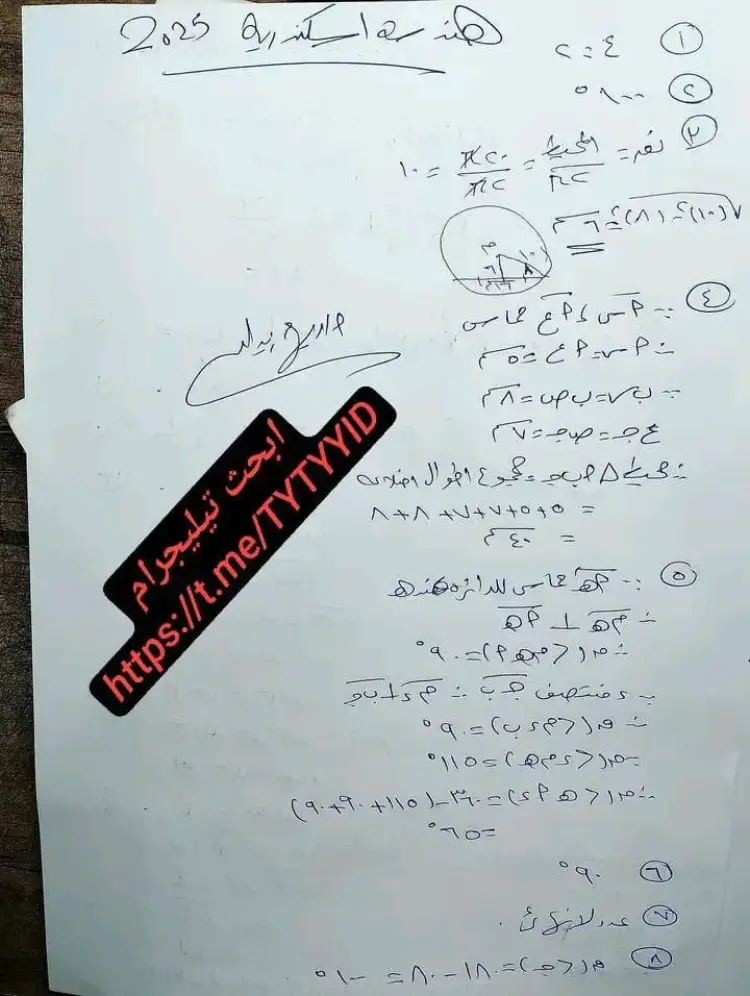 هندسة اسكندرية 2025
① ٤ = ٢
② ١٠٠°
③ نق = المحيط / ٢π = ٢٠π / ٢π = ١٠
√(١٠)² - (٨)² = ٦ سم
م
④ ∵ أس، أع مماس
∴ أس = أع = ٥ سم
∵ ب س = ب ص = ٨ سم
ع ج = ص ج = ٧ سم
∴ محيط Δ أ ب ج = مجموع أطوال أضلاعه
= ٥ + ٥ + ٧ + ٧ + ٨ + ٨
= ٤٠ سم
ابحث تيليجرام
https://t.me/TYTYYID
⑤ ∵ أهـ مماس للدائرة عند هـ
∴ م هـ ⊥ أ هـ
∴ ق(< م هـ أ) = ٩٠°
∵ د منتصف ج ب ∴ م د ⊥ ب ج
∴ ق(< م د ب) = ٩٠°
∴ ق(< د م هـ) = ١١٥°
∴ ق(< هـ أ د) = ٣٦٠ - (١١٥ + ٩٠ + ٩٠)
= ٦٥°
⑥ ٩٠°
⑦ عدد لانهائي
⑧ ق(< ج) = ١٨٠ - ٨٠ = ١٠٠°